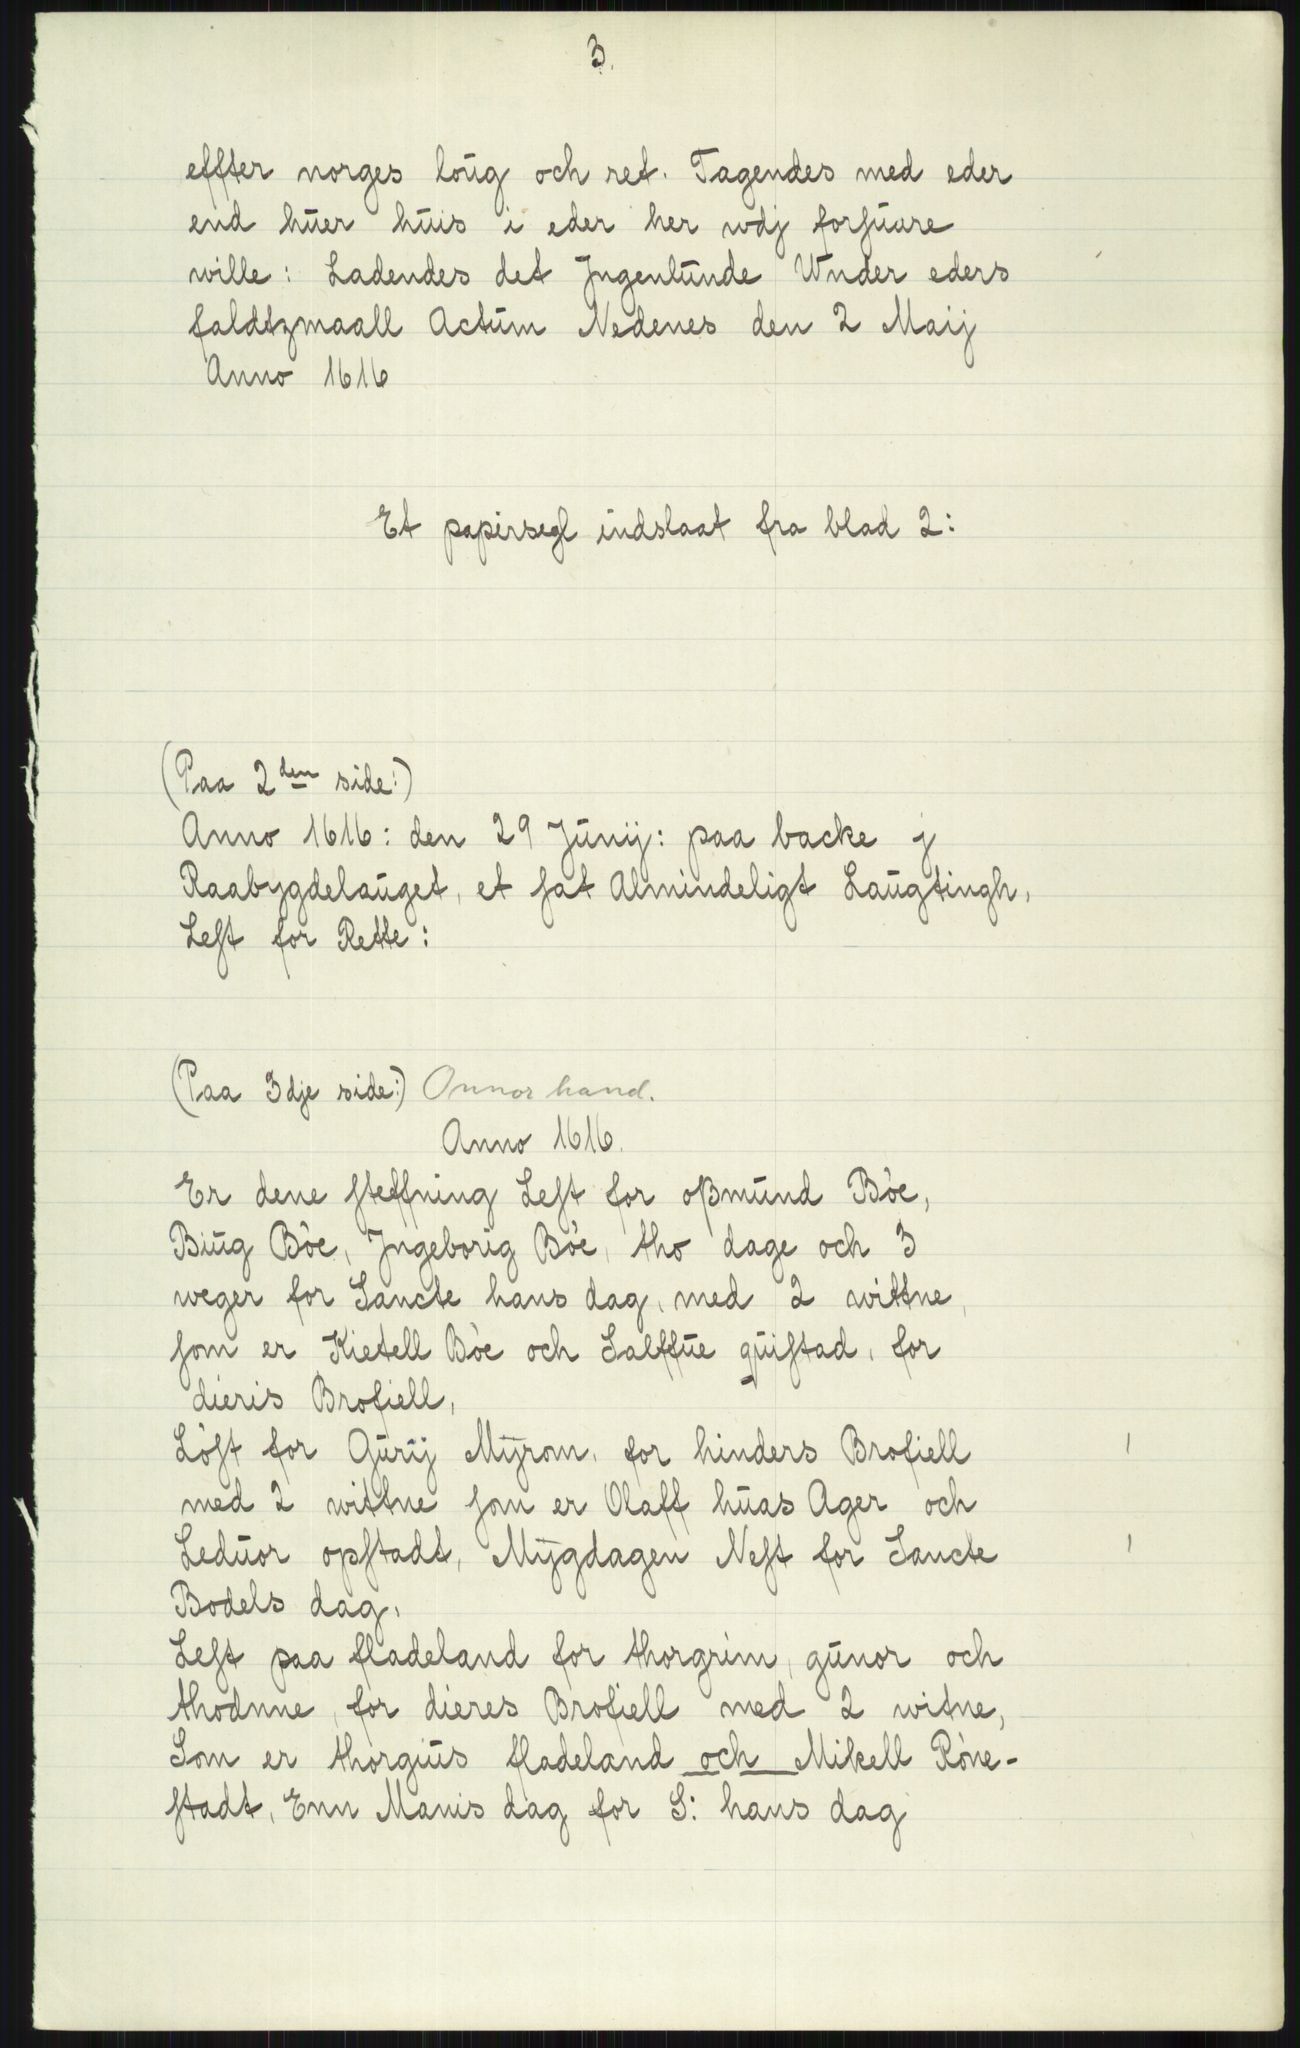 3.
effter norges loug och ret. Tagendes med eder
end huer huis i eder her wdj forsuare
wille: Ladendes det Jngenlunde Wnder eders
faldtzmaall Actum Nedenes den 2 Maij
Anno 1616
Et papirsegl indslaat fra blad 2:
(Paa 2den side:)
Anno 1616: den 29 Junij: paa backe j
Raabygdelauget, et sat Almindeligt Laugtingh,
Lest for Rette:
(Paa 3dje side:) Onnor hand.
Anno 1616.
Er dene steffning Lest for oßmund Bòe,
Biug Bòe, Jngeborig Bòe, tho dage och 3
weger for Sancte hans dag, med 2 wittne,
som er Kietell Bòe och Salffue quistad, for
dieris Brofiell,
Lòst for Gurij Myrom, for hinders Brofiell
med 2 wittne som er Olaff huas Ager och
Leduor opstadt, Mygdagen Nest for Sancte
Bodels dag,
Lest paa fladeland for thorgrim, gunor och
thodnne, for dieres Brofiell med 2 witne,
Som er thorgius fladeland och Mikell Ròne-
stadt, Enn Manis dag for S: hans dag